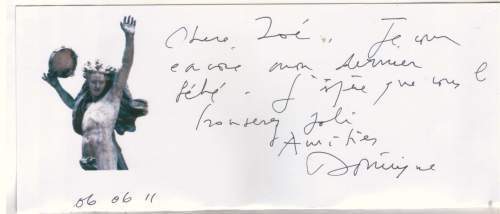 Chère Zoé.. Je vous
envoie mon dernier
bébé. J'espère que vous l
trouverez joli
Amitiés
Dominique
06 06 11